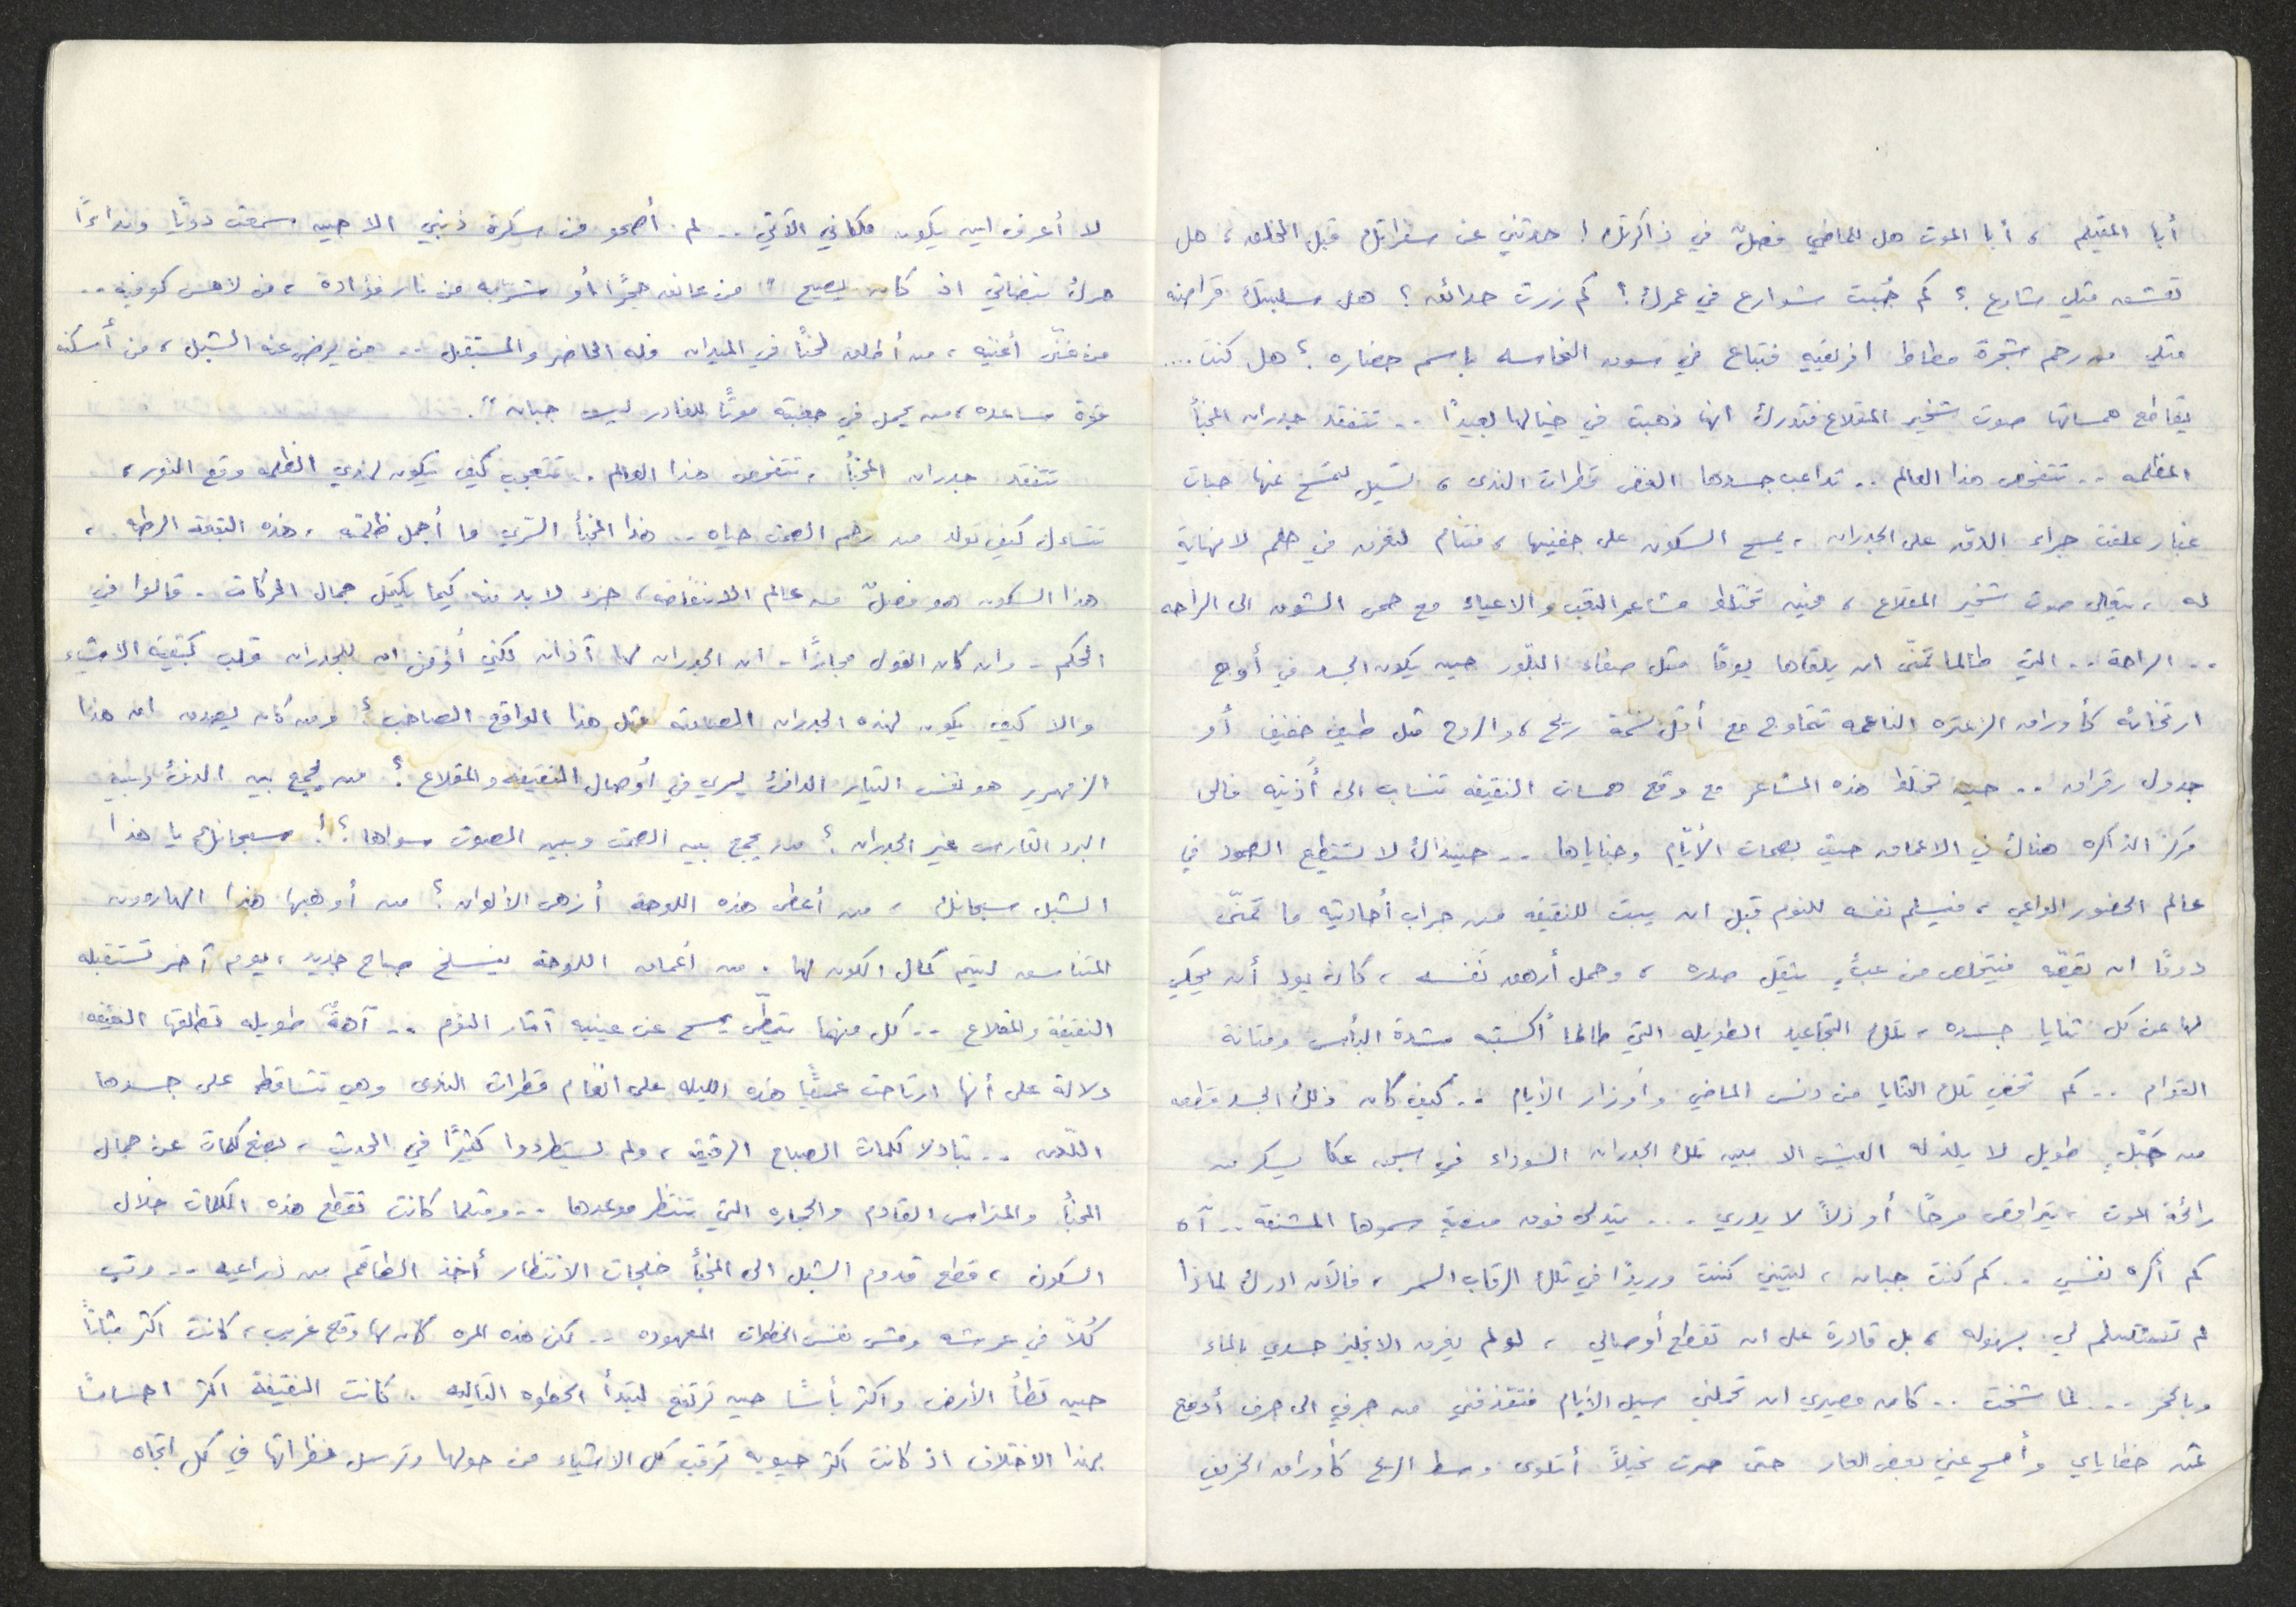 أيا المقيم ، أيا الموت هل للماضي فصلٌ في ذاكرتك ! حدثني عن سفراتك قبل الخلق ، هل
تعشق مثلي شارع ؟ كم جُبت شوارع في عمرك ؟ كم زرت حدائق ؟ هل سلبتك قراصنه
مثلي من رحم شجرة مطاط افريقيه فتباع في سوق النخاسه باسم حضاره ؟ هل كنت ....
يقاطع همساتها صوت شخير المقلاع فتدرك انها ذهبت في خيالها بعيدًا .. تتفقد جدران المخبأ
المظلمه .. تتفحص هذا العالم .. تداعب جسدها الغض قطرات الندى ، تسيل لتمسح عنها حبات
غبار علقت جراء الدق على الجدران ، يمسح السكون على جفنيها ، فتنام لتغرق في حلم لا نهاية
له ، يتعالى صوت شخير المقلاع ، فيه تختلط مشاعر التعب والاعياء مع حمى الشوق الى الراحه
.. الراحة .. التي طالما تمنّى ان يلقاها يومًا مثل صفاء البلّور حين يكون الجسد في أوج
ارتخائه كأوراق الزعتره الناعمه تتماوج مع أقل نسمة ريح ، والروح مثل طيف خفيف أو
جدول رقراق .. حين تختلط هذه المشاعر مع وقع همسات النقيفه تنساب الى أُذنيه فالى
مركز الذاكره هناك في الاعماق حيث بصمات الأيّام وخباياها .. حينذاك لا تستطيع الصمود في
عالم الحضور الواعي ، فيسلم نفسه للنوم قبل ان يبث للنقيفه من جراب أحاديثه ما تمنّى
دومًا ان يقصّه فيتخلص من عبءٍ يثقل صدره ، وحمل أرهق نَفَسه ، كان يود أن يحكي
لها عن كل ثنايا جسده ، تلك التجاعيد الطويله التي طالما أكسبته شدة البأس ومتانة
القوام .. كم تخفي تلك الثنايا من دنس الماضي وأوزار الأيام .. كيف كان ذلك الجسد قطعه
من حَبْلٍ طويل لا يلذ له العيش الا بين تلك الجدران السوداء في سجن عكا يسكر من
رائحة الموت ، يتراقص مرحًا أو ذلاً لا يدري ... يتدلى فوق منصةٍ سموها المشنقة .. آه
كم أكره نفسي .. كم كنت جبان ، ليتني كنت وريدًا في تلك الرقاب السمر ، فالآن ادرك لماذا
لم تستسلم لي بسهوله ، بل قادرة على ان تقطع أوصالي ، لو لم يغرق الانجليز جسدي بالماء
وبالخمر ... لما شخت .. كان مصيري ان تحملني سيل الأيام فتقذفني من جرفٍ الى جرف أدفع
ثمن خطاياي وأمسح عني بعض العار حتى صرت نحيلاً أتلوى وسط الريح كأوراق الخريف
لا أعرف اين يكون مكاني الآتي .. لم أصحو من سكرة ذنبي الا حين سمعت دويًا ونداءًا
حرك نبضاتي اذ كان يصيح " من عانق حجرًا أو شرّبه من نار فؤاده ، من لامس كوفيه ..
من غنّى أغنيه ، من أطلق لحنًا في الميدان فله الحاضر والمستقبل .. من يرضى عنه الشبل ، من أسكنه
قوة ساعده ، من يحمل في جعبته موتًا للغادر ليس جبان ".
تتفقد جدران المخبأ ، تتفحص هذا العالم .. تتعجب كيف يكون لهذي الظلمه وقع النور ،
تتساءل كيف تولد من رحم الصمت حياه .. هذا المخبأ السّري ما أجمل ظلمته ، هذه البقعة الرطبه ،
هذا السكون هو فصلٌ من عالم الانتفاضه ، جزء لا بد منه كيما يكتمل جمال الحركات . قالوا في
الحكم - وان كان القول مجازًا - ان الجدران لها آذان لكني أؤمن ان للجدران قلب كبقية الاشياء
والا كيف يكون لهذه الجدران الصامته مثل هذا الواقع الصاخب ؟ ومن كان يصدق ان هذا
الزمهرير هو نفس التيار الدافئ يسري في أوصال النقيفه والمقلاع ؟ من يجمع بين الدفئ وبين
البرد القارس غير الجدران ؟ من يجمع بين الصمت وبين الصوت سواها ؟! سبحانك يا هذا
الشبل سبحانك ، من أعطى هذه اللوحة أزهى الألوان ؟ من أوهبها هذا الهارمون
المتناسق ليتم كمال الكون لها . من أعماق اللوحة ينسلخ صباح جديد ، يوم آخر تستقبله
النقيفة والمقلاع .. كل منهما يتمطّى يمسح عن عينيه آثار النوم .. آهةٌ طويله تطلقها النقيفه
دلالة على أنها ارتاحت عميقًا هذه الليله على انغام قطرات الندى وهي تتساقط على جسدها
اللّدن .. تبادلا كلمات الصباح الرقيق ، ولم يستطردوا كثيرًا في الحديث ، بضع كلمات عن جمال
المخبأ والمتراس القادم والحجاره التي تنتظر موعدها .. ومثلما كانت تقطع هذه الكلمات خلال
السكون ، قطع قدوم الشبل الى المخبأ خلجات الانتظار أخذ الطاقم من ذراعيه .. رتب
كُلاً في عرشه ومشى نفس الخطوات المعهوده .. لكن هذه المره كان لها وقع غريب ، كانت اكثر ثباتًا
حين تطأ الأرض واكثر بأسًا حين ترتفع لتبدأ الخطوه التاليه . كانت النقيفة اكثر احساسًا
بهذا الاختلاف اذ كانت اكثر حيويه ترقب كل الاشياء من حولها وترسل نظراتها في كل اتجاه